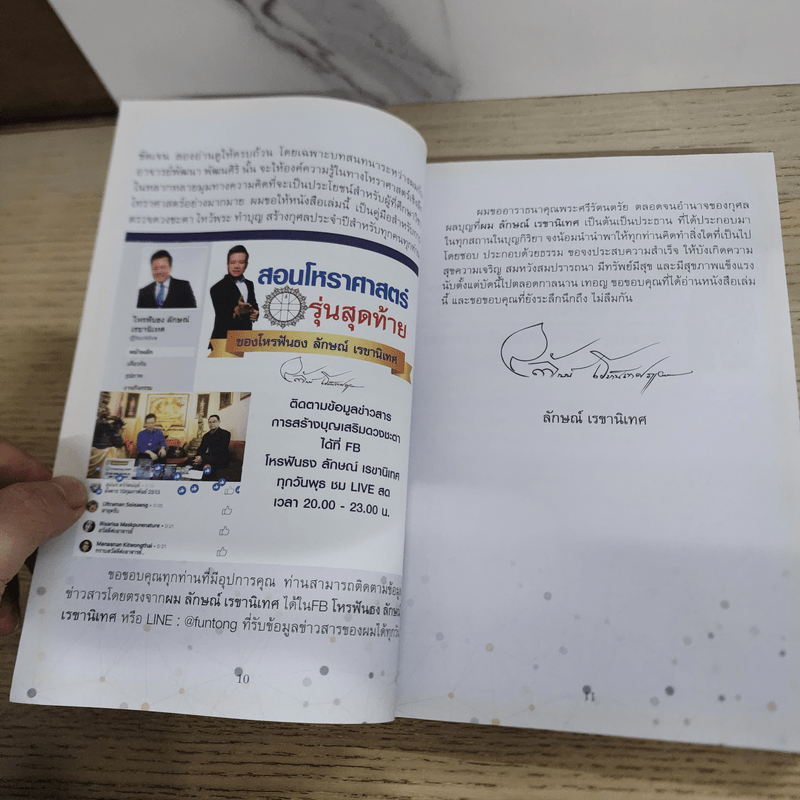 ชัดเจน ลองอ่านดูให้ครบถ้วน โดยเฉพาะบทสนทนาระหว่างผมกับ
อาจารย์พัฒนา พัฒนศิริ นั้น จะให้องค์ความรู้ในทางโหราศาสตร์เชิงลึก
ในหลากหลายมุมทางความคิดที่จะเป็นประโยชน์สำหรับผู้ที่ศึกษาวิชา
โหราศาสตร์อย่างมากมาย ผมขอให้หนังสือเล่มนี้ เป็นคู่มือสำหรับการ
ตรวจดวงชะตา ไหว้พระ ทำบุญ สร้างกุศลประจำปีสำหรับทุกคนทุกท่าน
สอนโหราศาสตร์
รุ่นสุดท้าย
ของโหรฟันธง ลักษณ์ เรขานิเทศ
โหรฟันธง ลักษณ์
เรขานิเทศ
@thaicklive
หน้าหลัก
เกี่ยวกับ
รูปภาพ
งานกิจกรรม
ติดตามข้อมูลข่าวสาร
การสร้างบุญเสริมดวงชะตา
ได้ที่ FB
โหรฟันธง ลักษณ์ เรขานิเทศ
ทุกวันพุธ ชม LIVE สด
เวลา 20.00 - 23.00 น.
Ultraman Saisaeng • 0:20
สาธุครับ
Risarisa Maskpunnature • 0:21
สวัสดีค่ะอาจารย์
Manasnun Kitwongthai • 0:21
กราบสวัสดีค่ะอาจารย์..
ขอขอบคุณทุกท่านที่มีอุปการคุณ ท่านสามารถติดตามข้อมูล
ข่าวสารโดยตรงจากผม ลักษณ์ เรขานิเทศ ได้ในFB โหรฟันธง ลักษณ์
เรขานิเทศ หรือ LINE : @funtong ที่รับข้อมูลข่าวสารของผมได้ทุกวัน
10
ผมขออาราธนาคุณพระศรีรัตนตรัย ตลอดจนอำนาจของกุศล
ผลบุญที่ผม ลักษณ์ เรขานิเทศ เป็นต้นเป็นประธาน ที่ได้ประกอบมา
ในทุกสถานในบุญกิริยา จงน้อมนำนำพาให้ทุกท่านคิดทำสิ่งใดที่เป็นไป
โดยชอบ ประกอบด้วยธรรม ขอจงประสบความสำเร็จ ให้บังเกิดความ
สุขความเจริญ สมหวังสมปรารถนา มีทรัพย์มีสุข และมีสุขภาพแข็งแรง
นับตั้งแต่บัดนี้ไปตลอดกาลนาน เทอญ ขอขอบคุณที่ได้อ่านหนังสือเล่ม
นี้ และขอขอบคุณที่ยังระลึกนึกถึง ไม่ลืมกัน
ลักษณ์ เรขานิเทศ
11